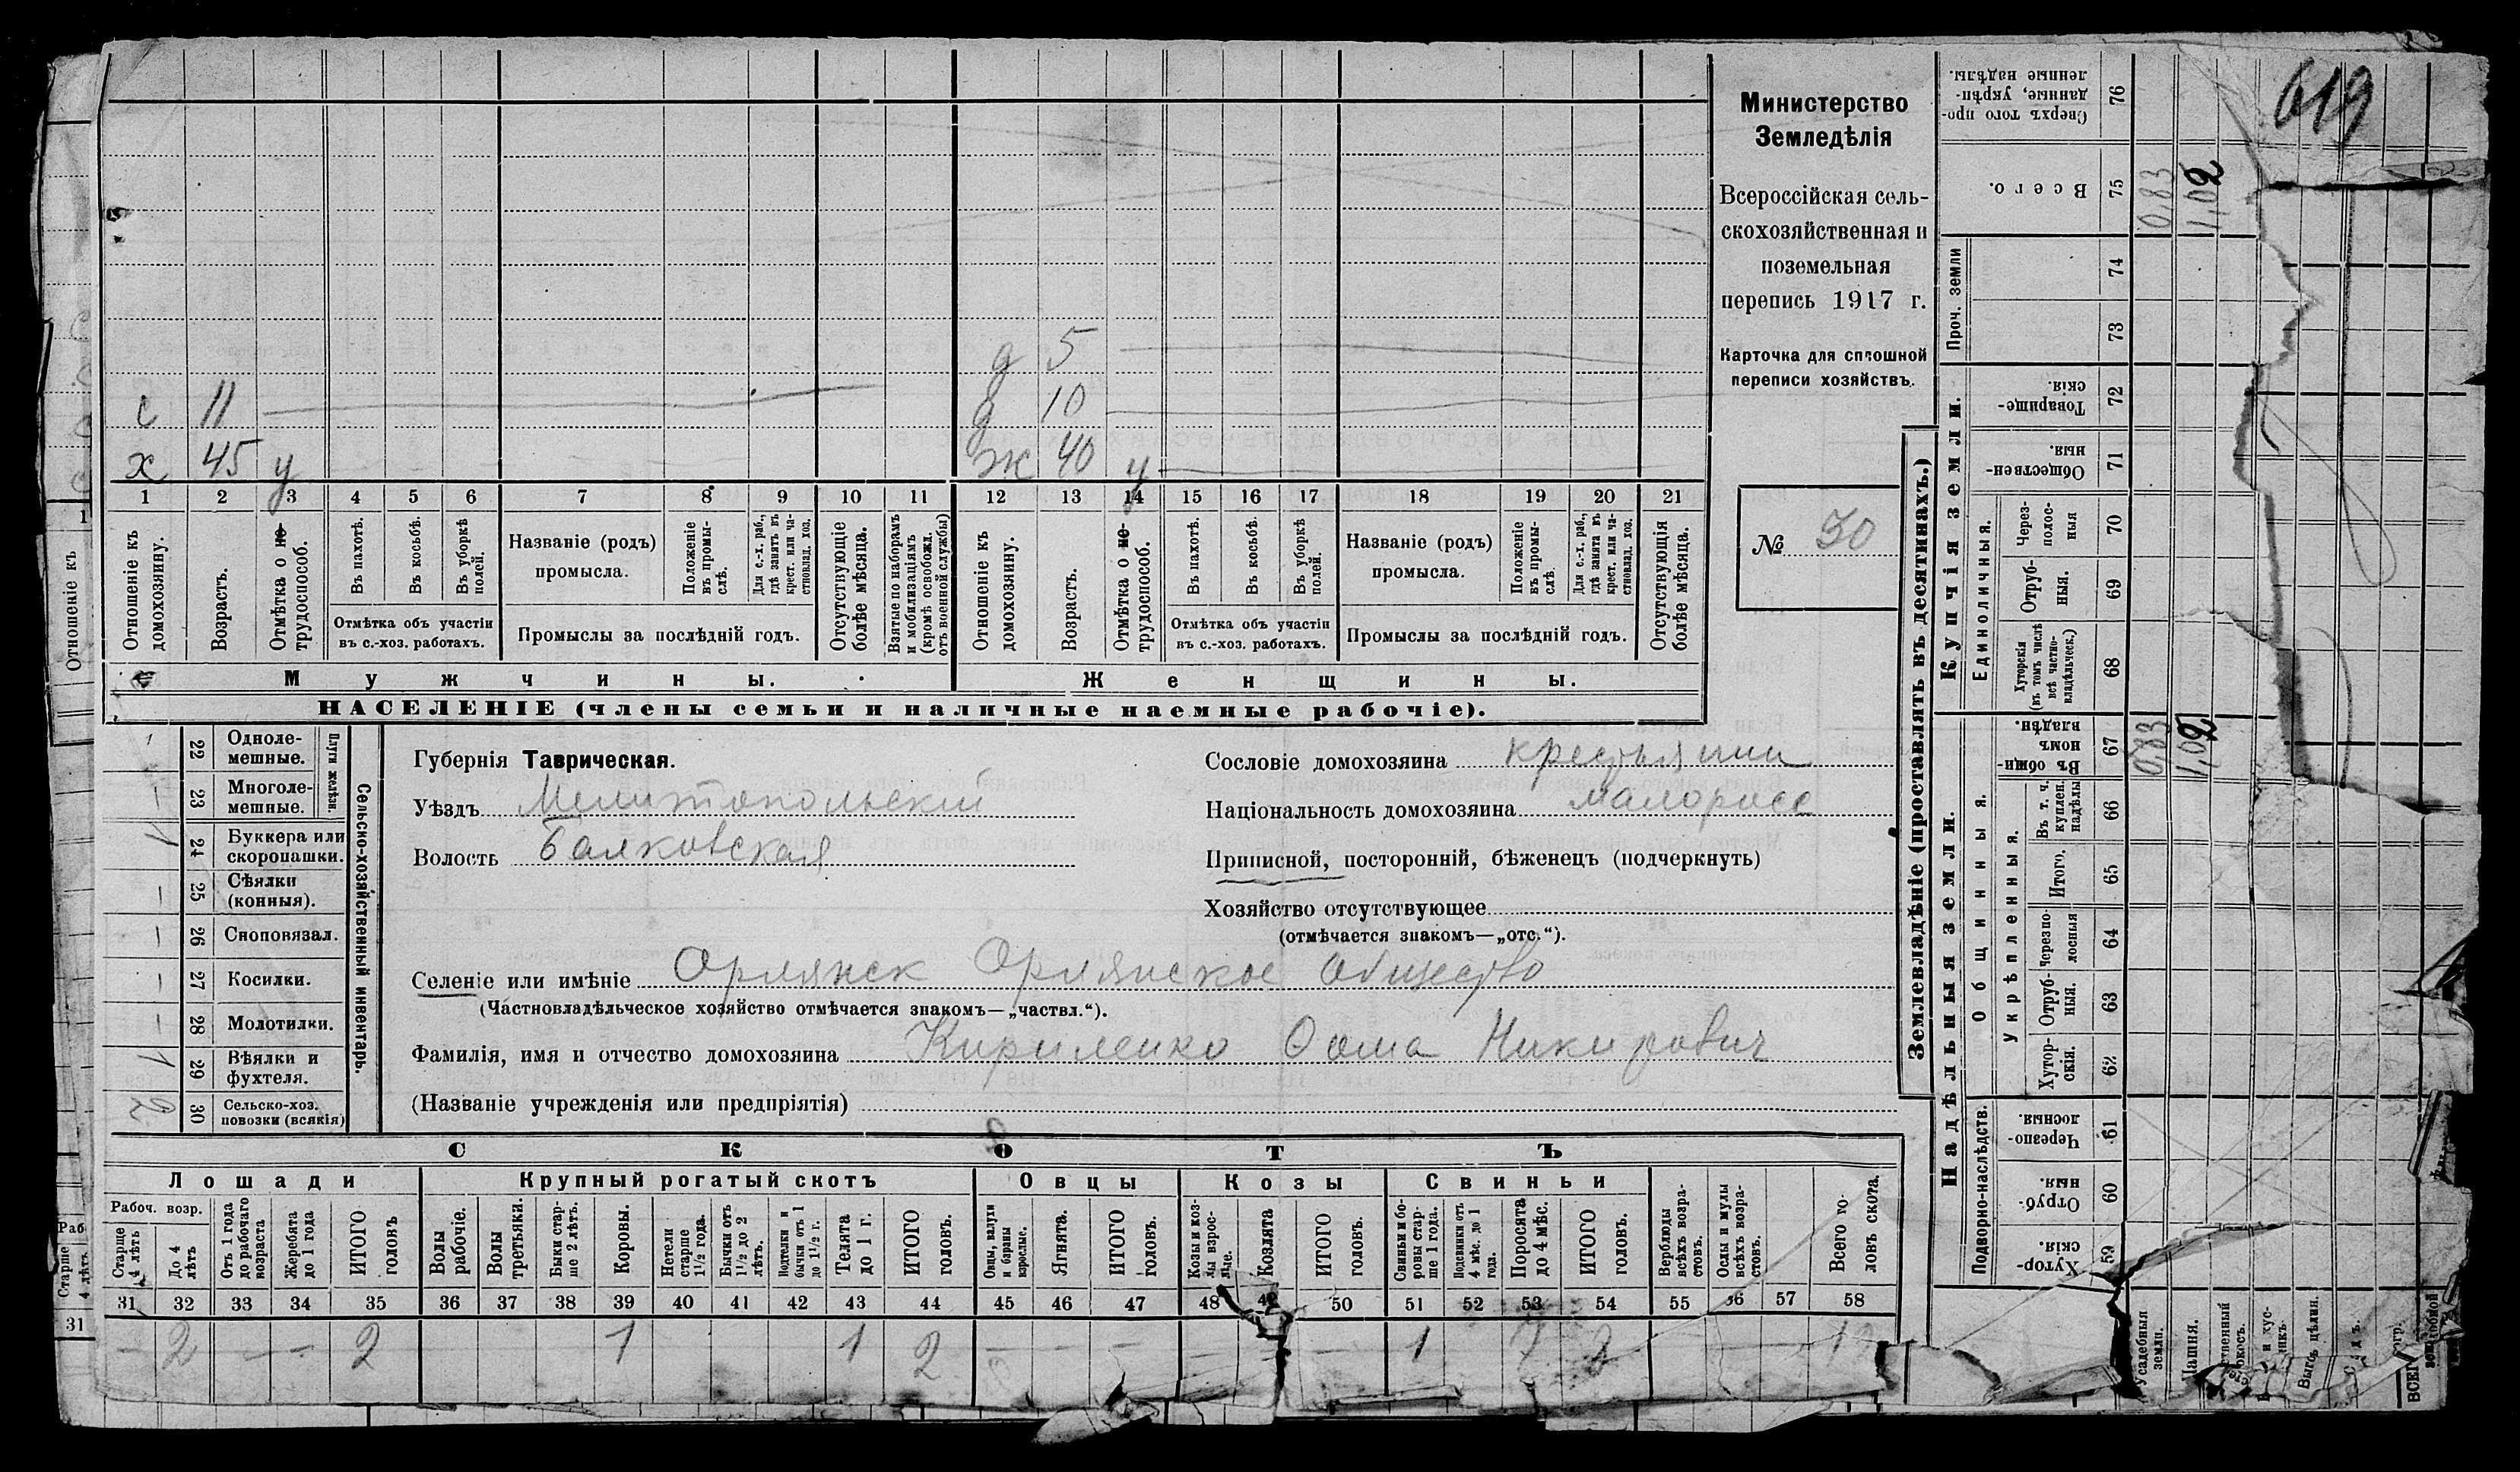 619
Министерство
Земледѣлія
Всероссійская сель-
скохозяйственная и
поземельная
перепись 1917 г.
Карточка для сплошной
переписи хозяйствъ.
№ 30
д 5
с 11 д 10
х 45 у ж 40 у
1 2 3 4 5 6 7 8 9 10 11 12 13 14 15 16 17 18 19 20 21
Отношеніе къ домохозяину.
Возрастъ.
Отмѣтка о не-трудоспособ.
Въ пахотѣ.
Въ косьбѣ.
Въ уборкѣ полей.
Отмѣтка объ участіи
въ с.-хоз. работахъ.
Названіе (родъ)
промысла.
Положеніе въ промы-слѣ.
Для с.-х. раб., гдѣ занятъ въ крест. или ча-стновлад. хоз.
Промыслы за послѣдній годъ.
Отсутствующіе болѣе мѣсяца.
Взятые по наборамъ и мобилизаціямъ (кромѣ освобожд. отъ военной службы)
Отношеніе къ домохозяину.
Возрастъ.
Отмѣтка о не-трудоспособ.
Въ пахотѣ.
Въ косьбѣ.
Въ уборкѣ полей.
Отмѣтка объ участіи
въ с.-хоз. работахъ.
Названіе (родъ)
промысла.
Положеніе въ промы-слѣ.
Для с.-х. раб., гдѣ занята въ крест. или ча-стновлад. хоз.
Промыслы за послѣдній годъ.
Отсутствующія болѣе мѣсяца.
Мужчины. Женщины.
НАСЕЛЕНІЕ (члены семьи и наличные наемные рабочіе).
Сельско-хозяйственный инвентарь.
Плуги желѣзн.
22 Одноле-мешные.
— 23 Многоле-мешные.
1 24 Буккера или скоропашки.
— 25 Сѣялки (конныя).
— 26 Сноповязал.
— 27 Косилки.
— 28 Молотилки.
1 29 Вѣялки и фухтеля.
2 30 Сельско-хоз. повозки (всякія)
Губернія Таврическая.
Уѣздъ Мелитопольскій
Волость Балковская
Сословіе домохозяина крестьянин
Національность домохозяина малоросс
Приписной, посторонній, бѣженецъ (подчеркнуть)
Хозяйство отсутствующее
(отмѣчается знакомъ—„отс.“).
Селеніе или имѣніе Орлянск Орлянское Общество
(Частновладѣльческое хозяйство отмѣчается знакомъ—„частвл.“).
Фамилія, имя и отчество домохозяина Кириленко Фома Никирович
(Названіе учрежденія или предпріятія)
СКОТЪ
Лошади Крупный рогатый скотъ Овцы Козы Свиньи
Рабоч. возр.
Старше 4 лѣтъ
До 4 лѣтъ
Отъ 1 года до рабочаго возраста
Жеребята до 1 года
ИТОГО головъ
Волы рабочіе.
Волы третьяки.
Быки стар-ше 2 лѣтъ.
Коровы.
Нетели старше 1½ года.
Бычки отъ 1½ до 2 лѣтъ.
Подтелки и бычки отъ 1 до 1½ г.
Телята до 1 г.
ИТОГО головъ.
Овцы, валухи и бараны взрослые.
Ягнята.
ИТОГО головъ.
Козы и коз-лы взрос-лые.
Козлята
ИТОГО головъ.
Свиньи и бо-ровы стар-ше 1 года.
Подсвинки отъ 4 мѣс. до 1 года.
Поросята до 4 мѣс.
ИТОГО головъ.
Верблюды всѣхъ возра-стовъ.
Ослы и мулы всѣхъ возра-стовъ.
Всего го-ловъ скота.
31 32 33 34 35 36 37 38 39 40 41 42 43 44 45 46 47 48 49 50 51 52 53 54 55 56 57 58
— 2 — — 2 1 1 2 — — — — — 1
Землевладѣніе (проставлять въ десятинахъ.)
Надѣльныя земли. Купчія земли.
Подворно-наслѣдств. Общинныя. Укрѣпленныя. Единоличныя. Проч. земли
76 Сверхъ того про-данные, укрѣп-ленные надѣлы.
75 Всего. 0,83 1,02
74
73
72 Товарище-скія.
71 Обществен-ныя.
70 Через-полос-ныя
69 Отруб-ныя.
68 Хуторскія (въ томъ числѣ всѣ частно-владѣльческ.)
67 Въ общин-номъ владѣн. 0,83 1,02
66 Въ т. ч. куплен. надѣлы
65 Итого.
64 Черезпо-лосныя
63 Отруб-ныя.
62 Хутор-скія.
61 Черезпо-лосныя
60 Отруб-ныя.
59 Хутор-скія.
Усадебныя земли.
Пашня.
Отношеніе къ
1
Старше 4 лѣтъ
31